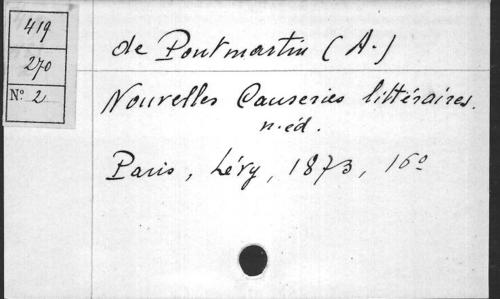 419
270
No. 2
de Pontmartin (A.)
Nouvelles Causeries littéraires.
n. éd.
Paris, Lévy, 1873, 16o